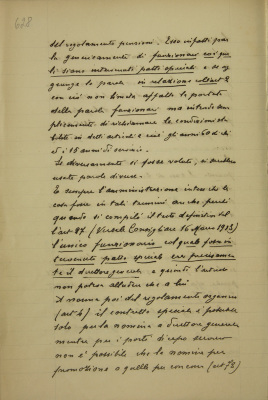 678
del regolamento pensioni. Essa infatti parla
genericamente di funzionari coi quali
si siano intervenuti patti speciali e si sp
la parola in relazione coll'art. 2
con ciò non limita affatto la portata
della parola funzionari ma intende sem
plicemente di richiamare le condizioni sta
bilite in detti articoli e cioè gli anni 60 di età
ed i 15 anni di servizio.
Se diversamente si fosse voluto, si sarebbero
usate parole diverse.
E sempre l'amministrazione intese che le
cose fosse in tali termini anche perchè
quando si compilò il testo definitivo del
l'art. 87 (Verbale Consigliare 16 Marzo 1903)
l'unico funzionario col quale fosse in
tervenuto patto speciale era precisamen
te il direttore generale, e quindi l'articolo
non poteva alludere che a lui
A norma poi del regolamento organico
(art. 4) il contratto speciale è possibile
solo per la nomina a direttore generale
mentre per i posti di capo servizio
non è possibile che la nomina per
promozione o quella per concorso (art. 78)